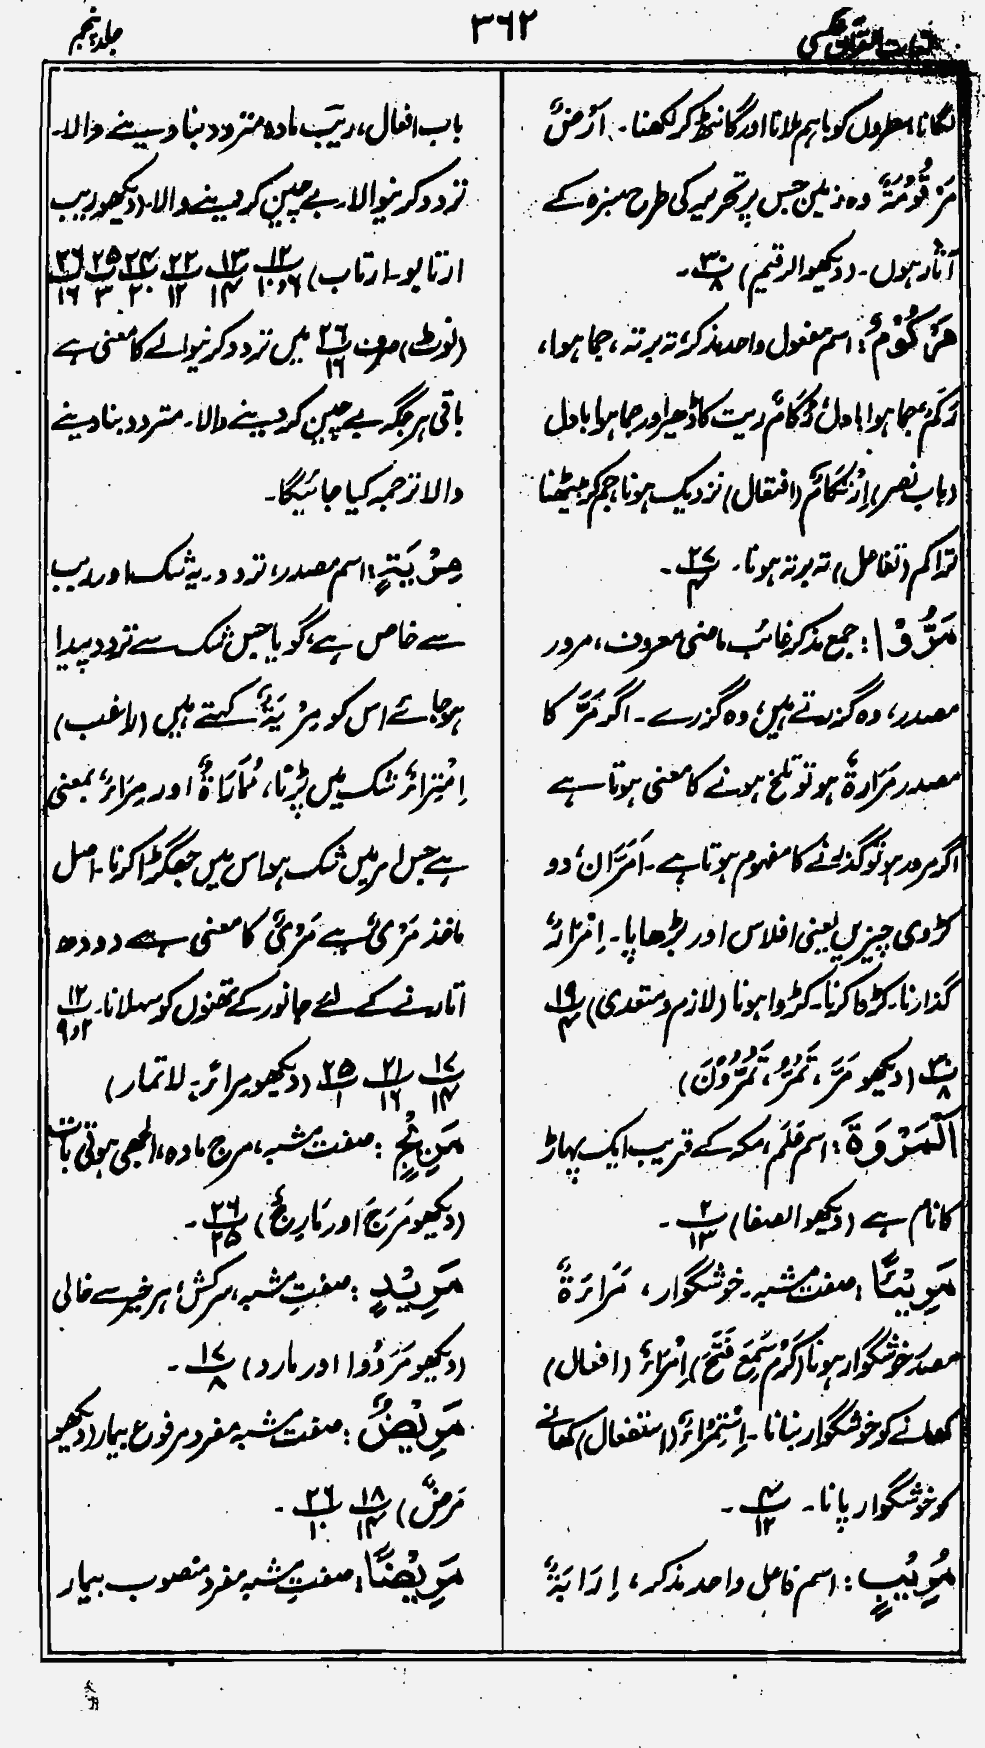 لغات القرآن عکسی
۳۶۲
جلد پنجم
لگانا، سطروں کو باہم ملانا اور گانٹھ کر لکھنا۔ اَرْضٌ
مَرْقُوْمَۃٌ وہ زمین جس پر تحریر کی طرح سبزہ کے
آثار ہوں۔ (دیکھو الرقیم) ۳۰/۸۔
مَرْکُوْمٌ: اسم مفعول واحد مذکر، تہ برتہ، جما ہوا،
رَکَمٌ جما ہوا بادل رُکَامٌ ریت کا ڈھیر اور جما ہوا بادل
(باب نصر) اِرْتِکَامٌ (افتعال) نزدیک ہونا جم کر بیٹھنا
تراکم (تفاعل) تہ برتہ ہونا۔ ۲۷/۴۔
مَرُّوْا: جمع مذکر غائب ماضی معروف، مرور
مصدر، وہ گذرتے ہیں، وہ گذرے۔ اگر مَرَّ کا
مصدر مَرَارۃٌ ہو تو تلخ ہونے کا معنی ہوتا ہے
اگر مرور ہو تو گذرنے کا مفہوم ہوتا ہے۔ اَمَرَّان، دو
کڑوی چیزیں یعنی افلاس اور بڑھاپا۔ اِمْرَارٌ
گذارنا۔ کڑوا کرنا۔ کڑوا ہونا (لازم و متعدی) ۱۹/۴
۳۰/۸ (دیکھو مَرَّ، تَمُرُّ، تَمُرُّوْنَ)
اَلْمَرْوَۃَ: اسم عَلَم، مکہ کے قریب ایک پہاڑ
کا نام ہے (دیکھو الصفا) ۲/۱۳۔
مَرِیْئًا: صفت مشبہ۔ خوشگوار، مَرَاءَۃٌ
مصدر خوشگوار ہونا (کَرُمَ سَمِعَ فَتَحَ) اِمْرَاءٌ (افعال)
کھانے کو خوشگوار بنانا۔ اِسْتِمْرَاءٌ (استفعال) کھانے
کو خوشگوار پانا۔ ۴/۱۲۔
مُرِیْبٍ: اسم فاعل واحد مذکر، اِرَابَۃٌ
باب افعال، رَیْب مادہ متردد بنا دینے والا۔
تردد کرنیوالا۔ بے چین کر دینے والا۔ (دیکھو ریب
ارتابو۔ ارتاب) ۱۲/۶و۱۰ ۱۳/۱۴ ۲۲/۱۲ ۲۴/۲۰ ۲۵/۳ ۲۶/۱۶
(نوٹ) صرف ۲۶/۱۶ میں تردد کرنیوالے کا معنی ہے
باقی ہر جگہ بے چین کر دینے والا۔ متردد بنا دینے
والا ترجمہ کیا جائیگا۔
مِرْیَۃٍ: اسم مصدر، تردد۔ یہ شک اور ریب
سے خاص ہے، گویا جس شک سے تردد پیدا
ہو جائے اس کو مِرْیَۃٌ کہتے ہیں (راغب)
اِمْتِرَاءٌ شک میں پڑنا، مُمَارَاۃٌ اور مِرَاءٌ بمعنی
ہے جس امر میں شک ہو اس میں جھگڑا کرنا۔ اصل
ماخذ مَرْیٌ ہے مَرْیٌ کا معنی ہے دودھ
اتارنے کے لئے جانور کے تھنوں کو سہلانا۔ ۱۲/۲و۹
۱۷/۱۴ ۲۱/۱۶ ۲۵/۱ (دیکھو مراءً۔ لا تمار)
مَرِیْجٍ: صفت مشبہ، مرج مادہ، الجھی ہوئی بات
(دیکھو مَرَجَ اور مَارِجٌ) ۲۶/۲۵۔
مَرِیْدٍ: صفتِ مشبہ، سرکش، ہر خیر سے خالی
(دیکھو مَرَدُوا اور مارد) ۱۷/۸۔
مَرِیْضٌ: صفت مشبہ مفرد مرفوع بیمار (دیکھو
مَرضٌ) ۱۸/۱۴ ۲۶/۱۰۔
مَرِیْضًا: صفتِ مشبہ مفرد منصوب بیمار